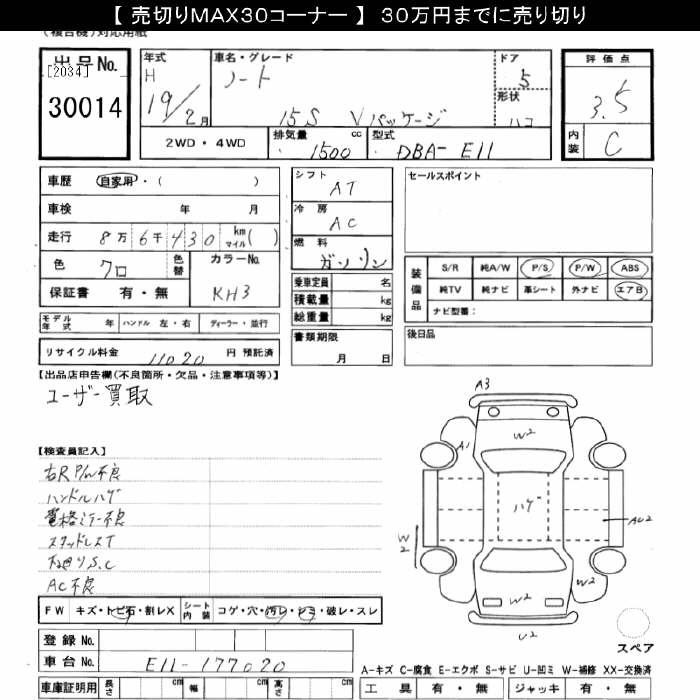 【 売切りMAX30コーナー 】 30万円までに売り切り
(複合機)対応用紙
出品No. [2034] 30014
年式 H 19/2月
車名・グレード ノート 15S Vパッケージ
ドア 5
形状 ハコ
評価点 3.5
内装 C
2WD・4WD
排気量 1500 cc
型式 DBA- E11
車歴 自家用・( )
車検 年 月
走行 8万6千430 km マイル( )
色 クロ 色替
カラーNo. KH3
保証書 有・無
シフト AT
冷房 AC
燃料 ガソリン
乗車定員 名
積載量 kg
総重量 kg
書類期限 月 日
セールスポイント
装備品 S/R 純A/W P/S P/W ABS
純TV 純ナビ 革シート 外ナビ エアB
ナビ型番:
後日品
モデル年式 年 ハンドル 左・右 ディーラー・並行
リサイクル料金 11020 円 預託済
【出品店申告欄(不良箇所・欠品・注意事項等)】
ユーザー買取
【検査員記入】
右R P/W不良
ハンドルハゲ
電格ミラー不良
スタッドレスT
下廻りS.C
AC不良
FW キズ・トビ石・割レX
シート内装 コゲ・穴・汚レ・シミ・破レ・スレ
登録No.
車台No. E11-177020
車庫証明用 長さ cm 幅 cm 高さ cm
A3
A1
W2
ハゲ
AU2
W2
W2
W2
U2
スペア
A-キズ C-腐食 E-エクボ S-サビ U-凹ミ W-補修 XX-交換済
工具 有・無 ジャッキ 有・無